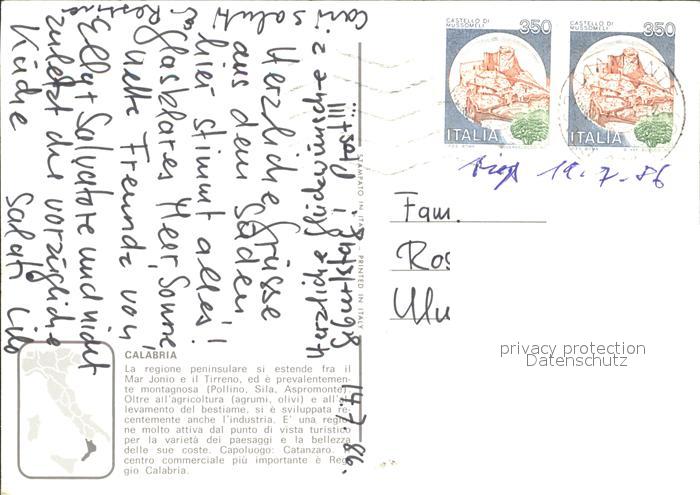 CASTELLO DI MUSSOMELI 350
ITALIA
CASTELLO DI MUSSOMELI 350
ITALIA
19.7.86
Fam.
Ros
Ulu
privacy protection
Datenschutz
STAMPATO IN ITALY - PRINTED IN ITALY
14.7.86.
Cari saluti
Herzliche Grüsse
aus dem Süden
hier stimmt alles!
glasklares Meer, Sonne,
nette Freunde von
Elly + Salvatore und nicht
zuletzt die vorzügliche
Küche Saluti
Herzliche Glückwünsche z.
Geburtstag! Prost!!!
CALABRIA
La regione peninsulare si estende fra il
Mar Jonio e il Tirreno, ed è prevalentemen-
te montagnosa (Pollino, Sila, Aspromonte).
Oltre all'agricoltura (agrumi, olivi) e all'al-
levamento del bestiame, si è sviluppata re-
centemente anche l'industria. E' una regio-
ne molto attiva dal punto di vista turistico
per la varietà dei paesaggi e la bellezza
delle sue coste. Capoluogo: Catanzaro. Il
centro commerciale più importante è Reg-
gio Calabria.